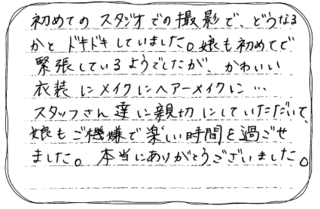 初めてのスタジオでの撮影で、どうなる
かとドキドキしていました。娘も初めてで
緊張しているようでしたが、かわいい
衣装にメイクにヘアーメイクに…
スタッフさん達に親切にしていただいて、
娘もご機嫌で楽しい時間を過ごせ
ました。本当にありがとうございました。